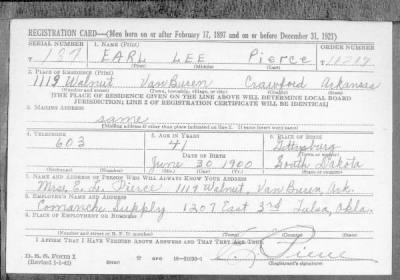 REGISTRATION CARD—(Men born on or after February 17, 1897 and on or before December 31, 1921)
SERIAL NUMBER 1. NAME (Print) ORDER NUMBER
T 187 EARL LEE Pierce T
(First) (Middle) (Last)
2. PLACE OF RESIDENCE (Print)
1119 Walnut Van Buren Crawford Arkansas
(Number and street) (Town, township, village, or city) (County) (State)
[THE PLACE OF RESIDENCE GIVEN ON THE LINE ABOVE WILL DETERMINE LOCAL BOARD
JURISDICTION; LINE 2 OF REGISTRATION CERTIFICATE WILL BE IDENTICAL]
3. MAILING ADDRESS
same
[Mailing address if other than place indicated on line 2. If same insert word same]
4. TELEPHONE 5. AGE IN YEARS 6. PLACE OF BIRTH
603 41 Gettysburg
DATE OF BIRTH (Town or county)
June 30 1900 South Dakota
(Mo.) (Day) (Yr.) (State or country)
7. NAME AND ADDRESS OF PERSON WHO WILL ALWAYS KNOW YOUR ADDRESS
Mrs. E. L. Pierce 1119 Walnut, Van Buren, Ark.
8. EMPLOYER'S NAME AND ADDRESS
Comanche Supply 1207 East 3rd Tulsa, Okla.
9. PLACE OF EMPLOYMENT OR BUSINESS
(Number and street or R. F. D. number) (Town) (County) (State)
I AFFIRM THAT I HAVE VERIFIED ABOVE ANSWERS AND THAT THEY ARE TRUE.
D. S. S. Form 1 Pierce
(Revised 1-1-42) (over) 16—21630-1 (Registrant's signature)